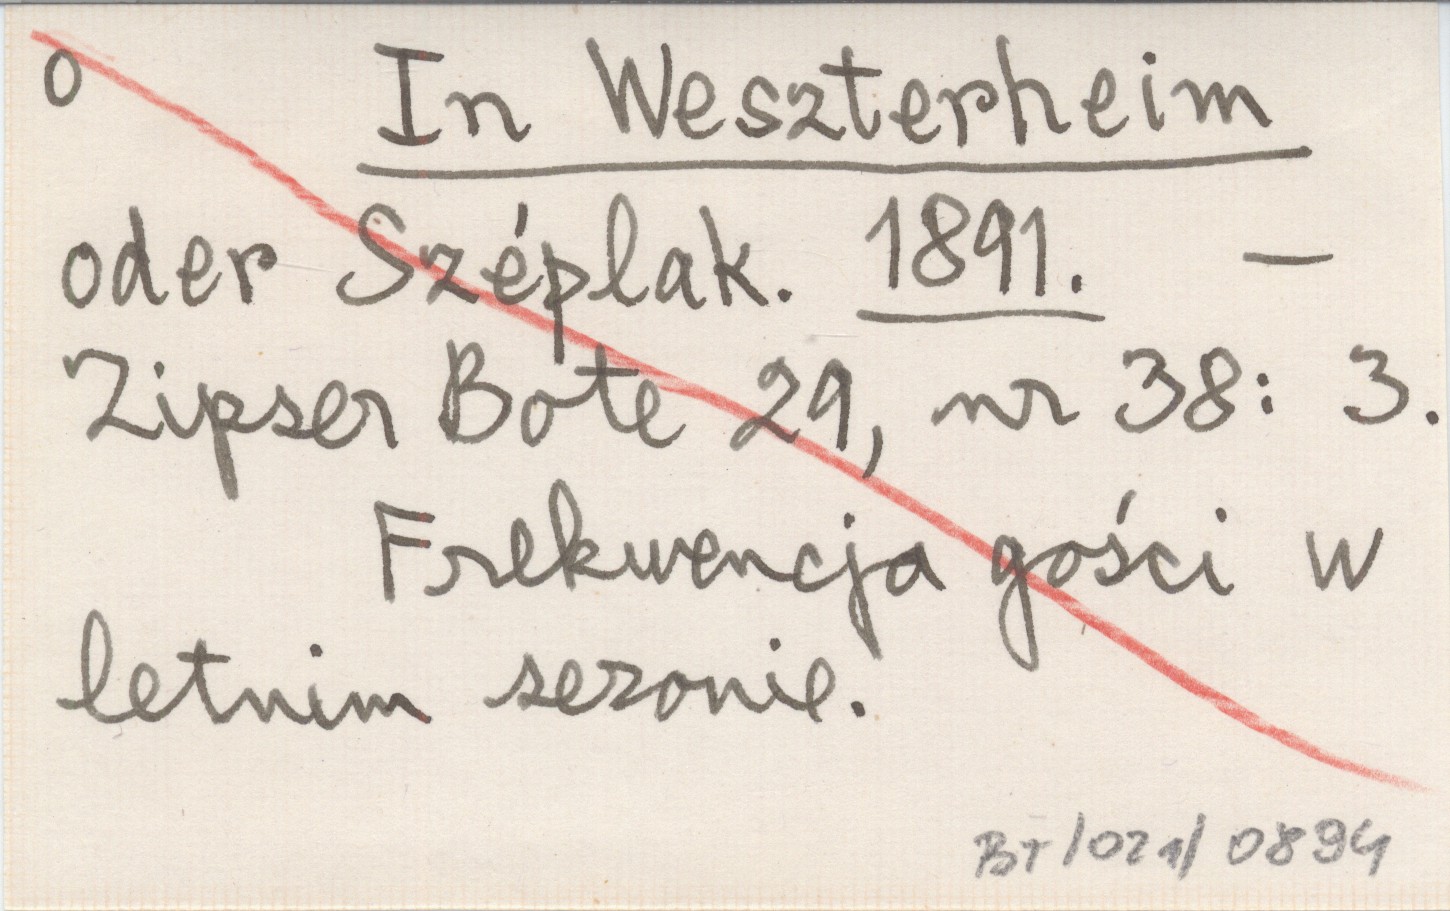 o In Weszterheim
oder Széplak. 1891. —
Zipser Bote 29, nr 38: 3.
Frekwencja gości w
letnim sezonie.
BT/021/0894